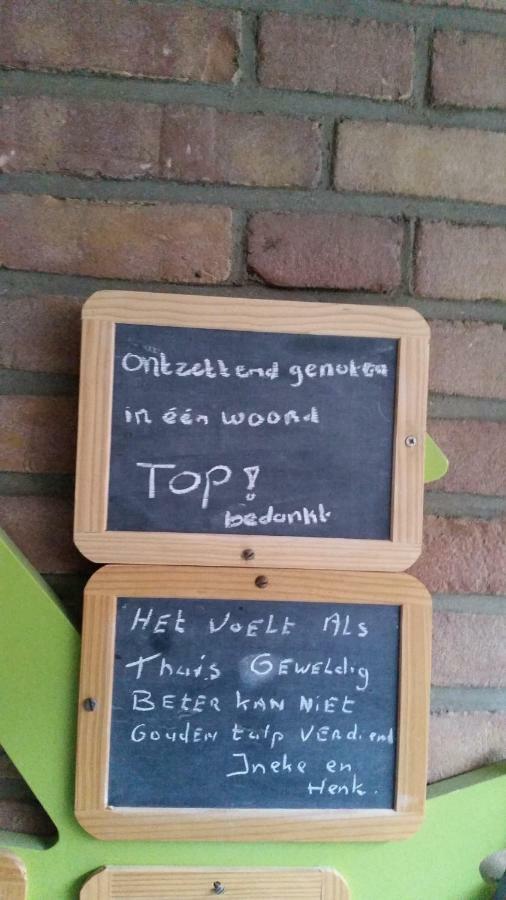 Ontzettend genoten
in één woord
TOP!
bedankt
HEt VOELt Als
Thuis GEWELdig
BEtER KAN NiEt
GOUDEN tulp VERdiend
Ineke en
Henk.